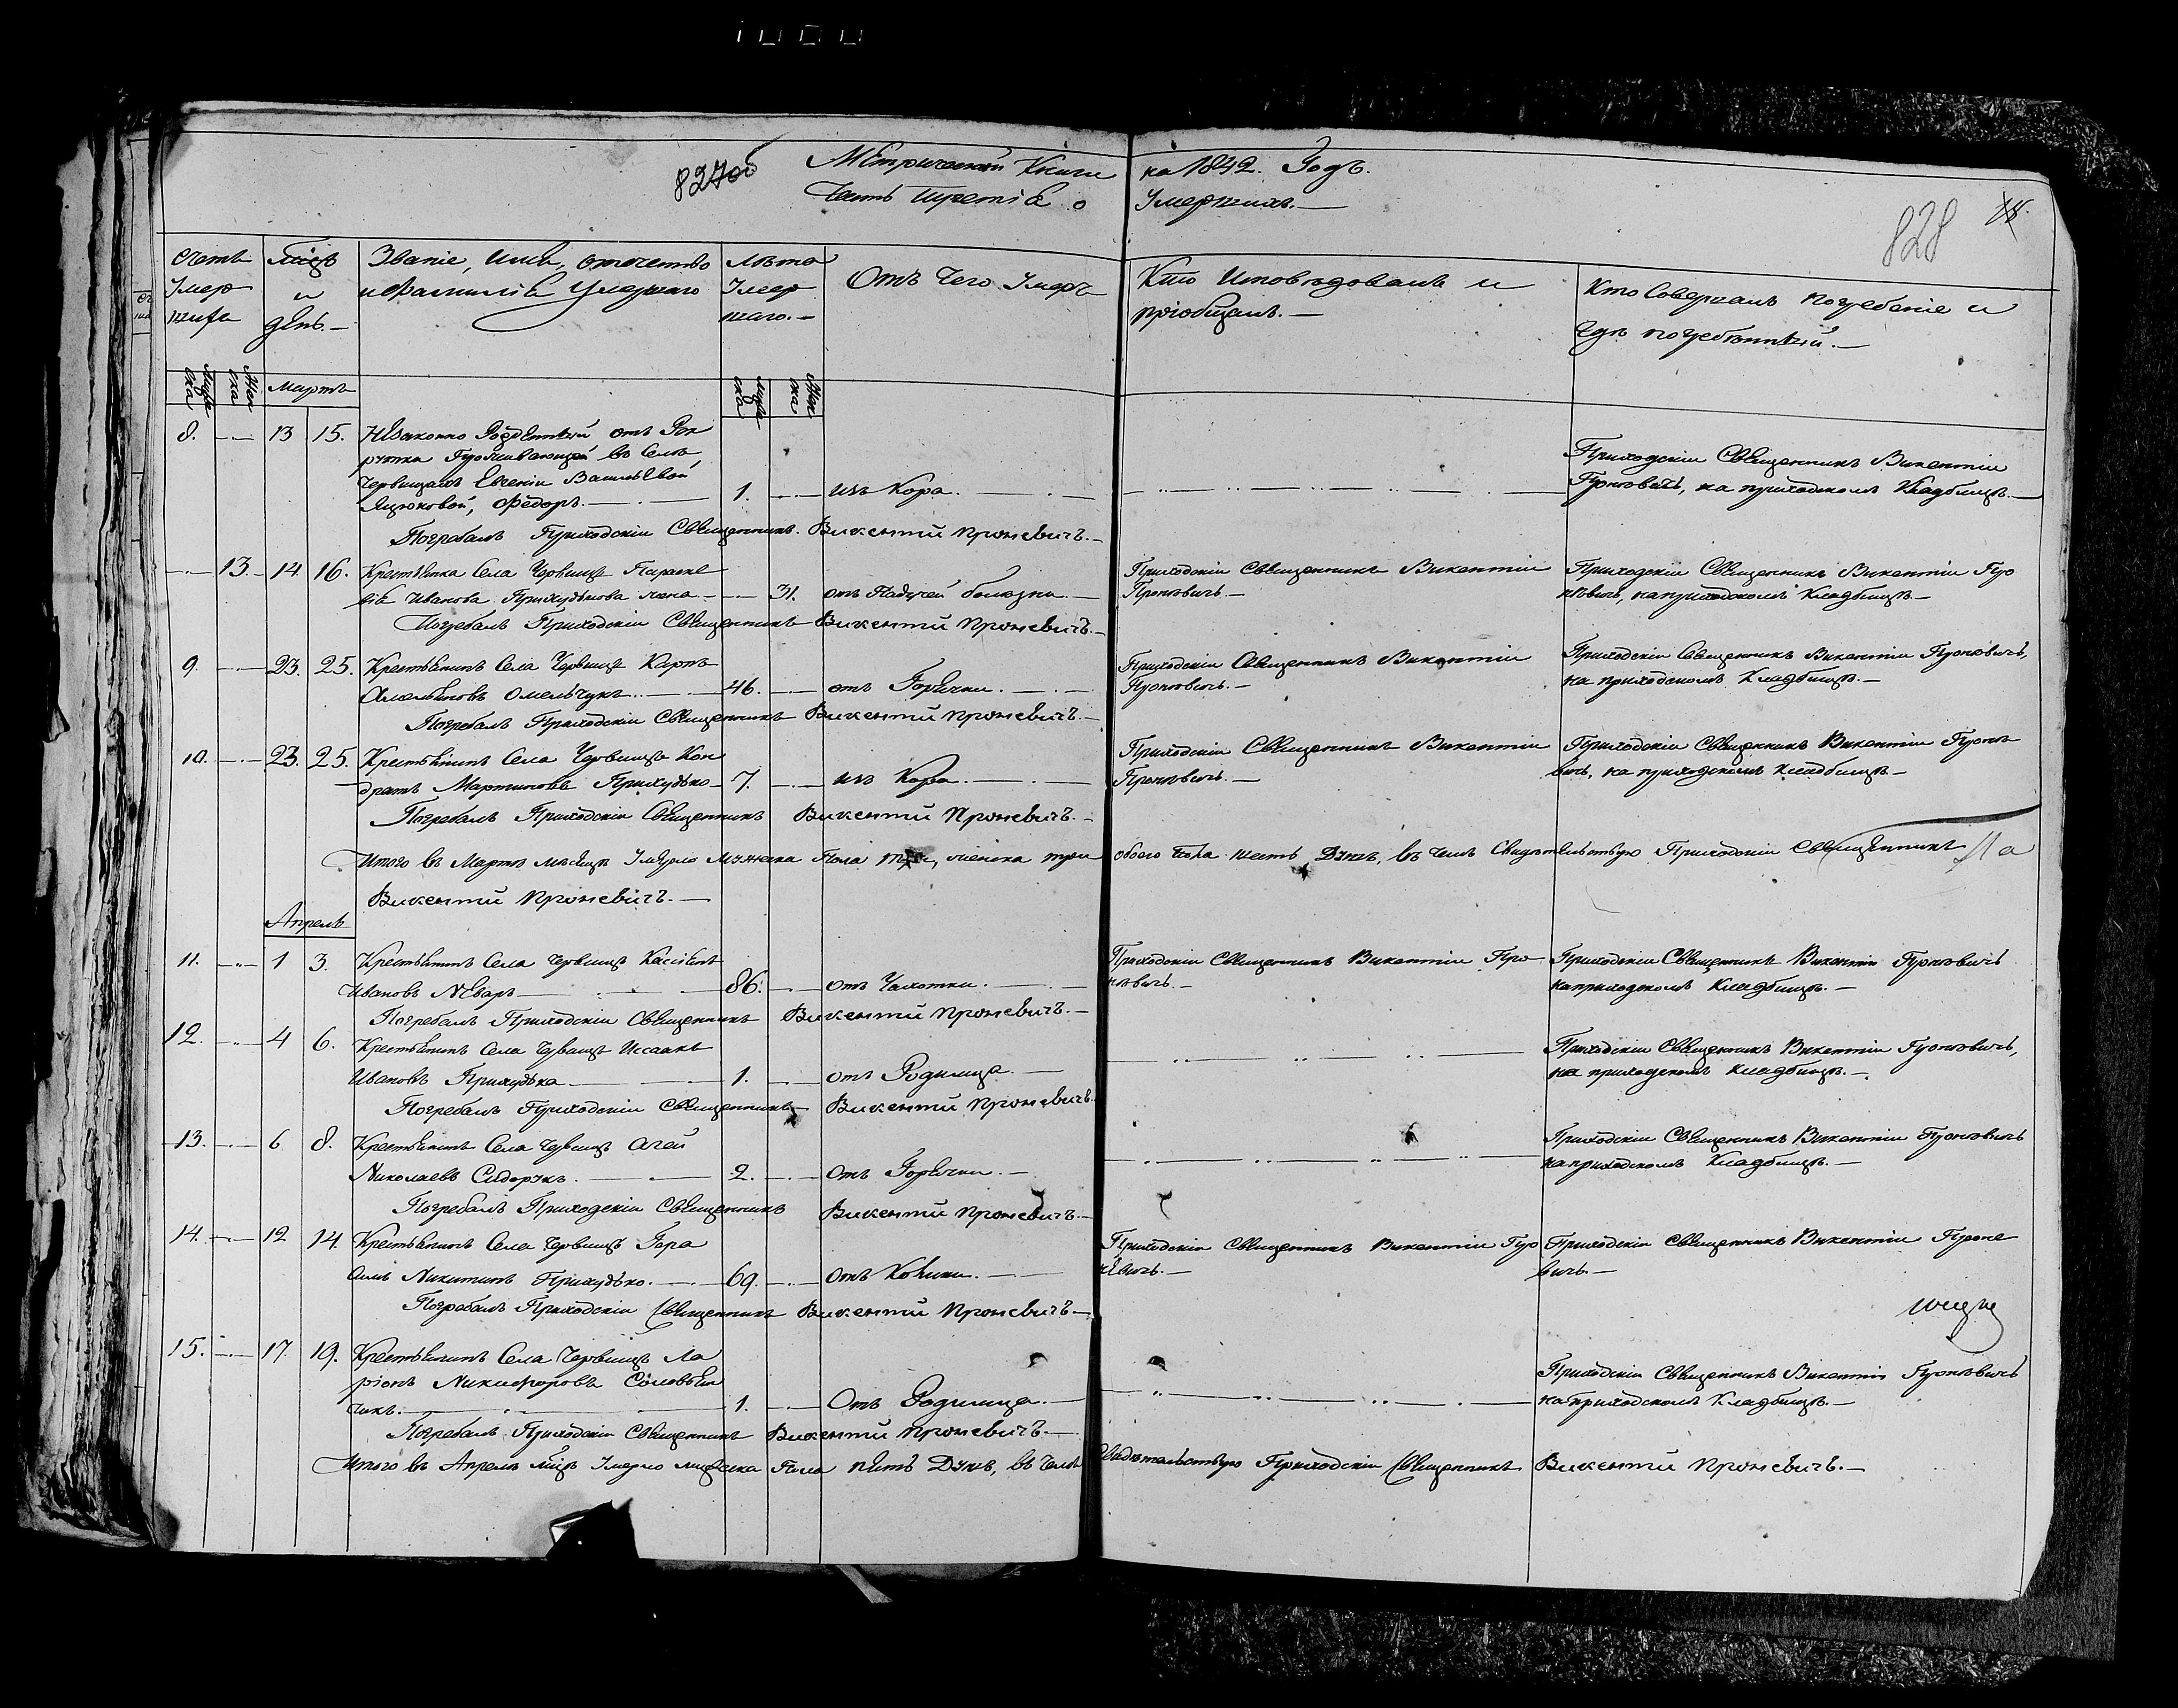 827об
Метрической Книги на 1842. Годъ.
Часть третія о Умершихъ.—
828
18.
Счетъ Умершихъ
Мѣсяцъ и день.—
Званіе, имя, отчество и фамилія Умершаго
Лѣта Умершаго.—
Отъ Чего Умеръ
Кто Исповѣдовалъ и пріобщалъ.—
Кто Совершалъ погребеніе и гдѣ погребенный.—
Мужеска Женска
Мартъ
Мужеска Женска
8. — 13 15. Незаконно Рожденный отъ
проживающей въ Селѣ
Червищахъ Евгеніи Васильевой
Яцюковой, Ѳедоръ.— 1. — изъ Кора.—
Приходскій Священникъ Викентій
Проневичъ, на приходскомъ Кладбищѣ.—
Погребалъ Приходскій Священникъ Викентій Проневичъ.—
— 13. 14 16. Крестьянка Села Червищъ Параске
вія Иванова Прихудькова жена — 31. отъ Падучей болѣзни.—
Приходскій Священникъ Викентій
Проневичъ.—
Приходскій Священникъ Викентій Про
невичъ, на приходскомъ Кладбищѣ.—
Погребалъ Приходскій Священникъ Викентій Проневичъ.—
9. — 23. 25. Крестьянинъ Села Червищъ Карпъ
Омельяновъ Омельчукъ.— 46. — отъ Горячки.—
Приходскій Священникъ Викентій
Проневичъ.—
Приходскій Священникъ Викентій Проневичъ,
на приходскомъ Кладбищѣ.—
Погребалъ Приходскій Священникъ Викентій Проневичъ.—
10. — 23. 25. Крестьянинъ Села Червищъ Кон
дратъ Мартиновъ Прихудько — 7. — изъ Кора.—
Приходскій Священникъ Викентій
Проневичъ.—
Приходскій Священникъ Викентій Проне
вичъ, на приходскомъ кладбищѣ.—
Погребалъ Приходскій Священникъ Викентій Проневичъ.—
Итого въ Мартѣ мѣсяцѣ Умерло Мужеска Пола три, женска три обоего Пола шесть Душъ, въ чемъ Свидѣтельствую Приходскій Священникъ
Викентій Проневичъ.—
Апрель
11. — 1 3. Крестьянинъ Села Червищъ Кассіянъ
Ивановъ Неваръ — 86. — отъ Чахотки.—
Приходскій Священникъ Викентій Про
невичъ.—
Приходскій Священникъ Викентій Проневичъ
на приходскомъ Кладбищѣ.—
Погребалъ Приходскій Священникъ Викентій Проневичъ.—
12. — 4 6. Крестьянинъ Села Червищъ Иссаакъ
Ивановъ Прихудька — 1. — отъ Родимца.—
Приходскій Священникъ Викентій Проневичъ,
на приходскомъ кладбищѣ.—
Погребалъ Приходскій Священникъ Викентій Проневичъ.
13. — 6 8. Крестьянинъ Села Червищъ Агей
Николаевъ Сидорукъ.— 2. — отъ Горячки.—
Приходскій Священникъ Викентій Проневичъ
на приходскомъ Кладбищѣ.—
Погребалъ Приходскій Священникъ Викентій Проневичъ.—
14. — 12 14. Крестьянинъ Села Червищъ Гера
симъ Никитинъ Прихудько.— 69. — отъ Колики.—
Приходскій Священникъ Викентій Про
невичъ.—
Приходскій Священникъ Викентій Проне
вичъ.—
Погребалъ Приходскій Священникъ Викентій Проневичъ.—
15. — 17. 19. Крестьянинъ Села Червищъ Ла
ріонъ Никифоровъ Соловьян
чикъ.— 1. — Отъ Родимца.—
Приходскій Священникъ Викентій Проневичъ
на приходскомъ Кладбищѣ.—
Погребалъ Приходскій Священникъ Викентій Проневичъ.—
Итого въ Апрелѣ мѣсяцѣ Умерло мужеска Пола пять Душъ, въ чемъ Свидѣтельствую Приходскій Священникъ Викентій Проневичъ.—